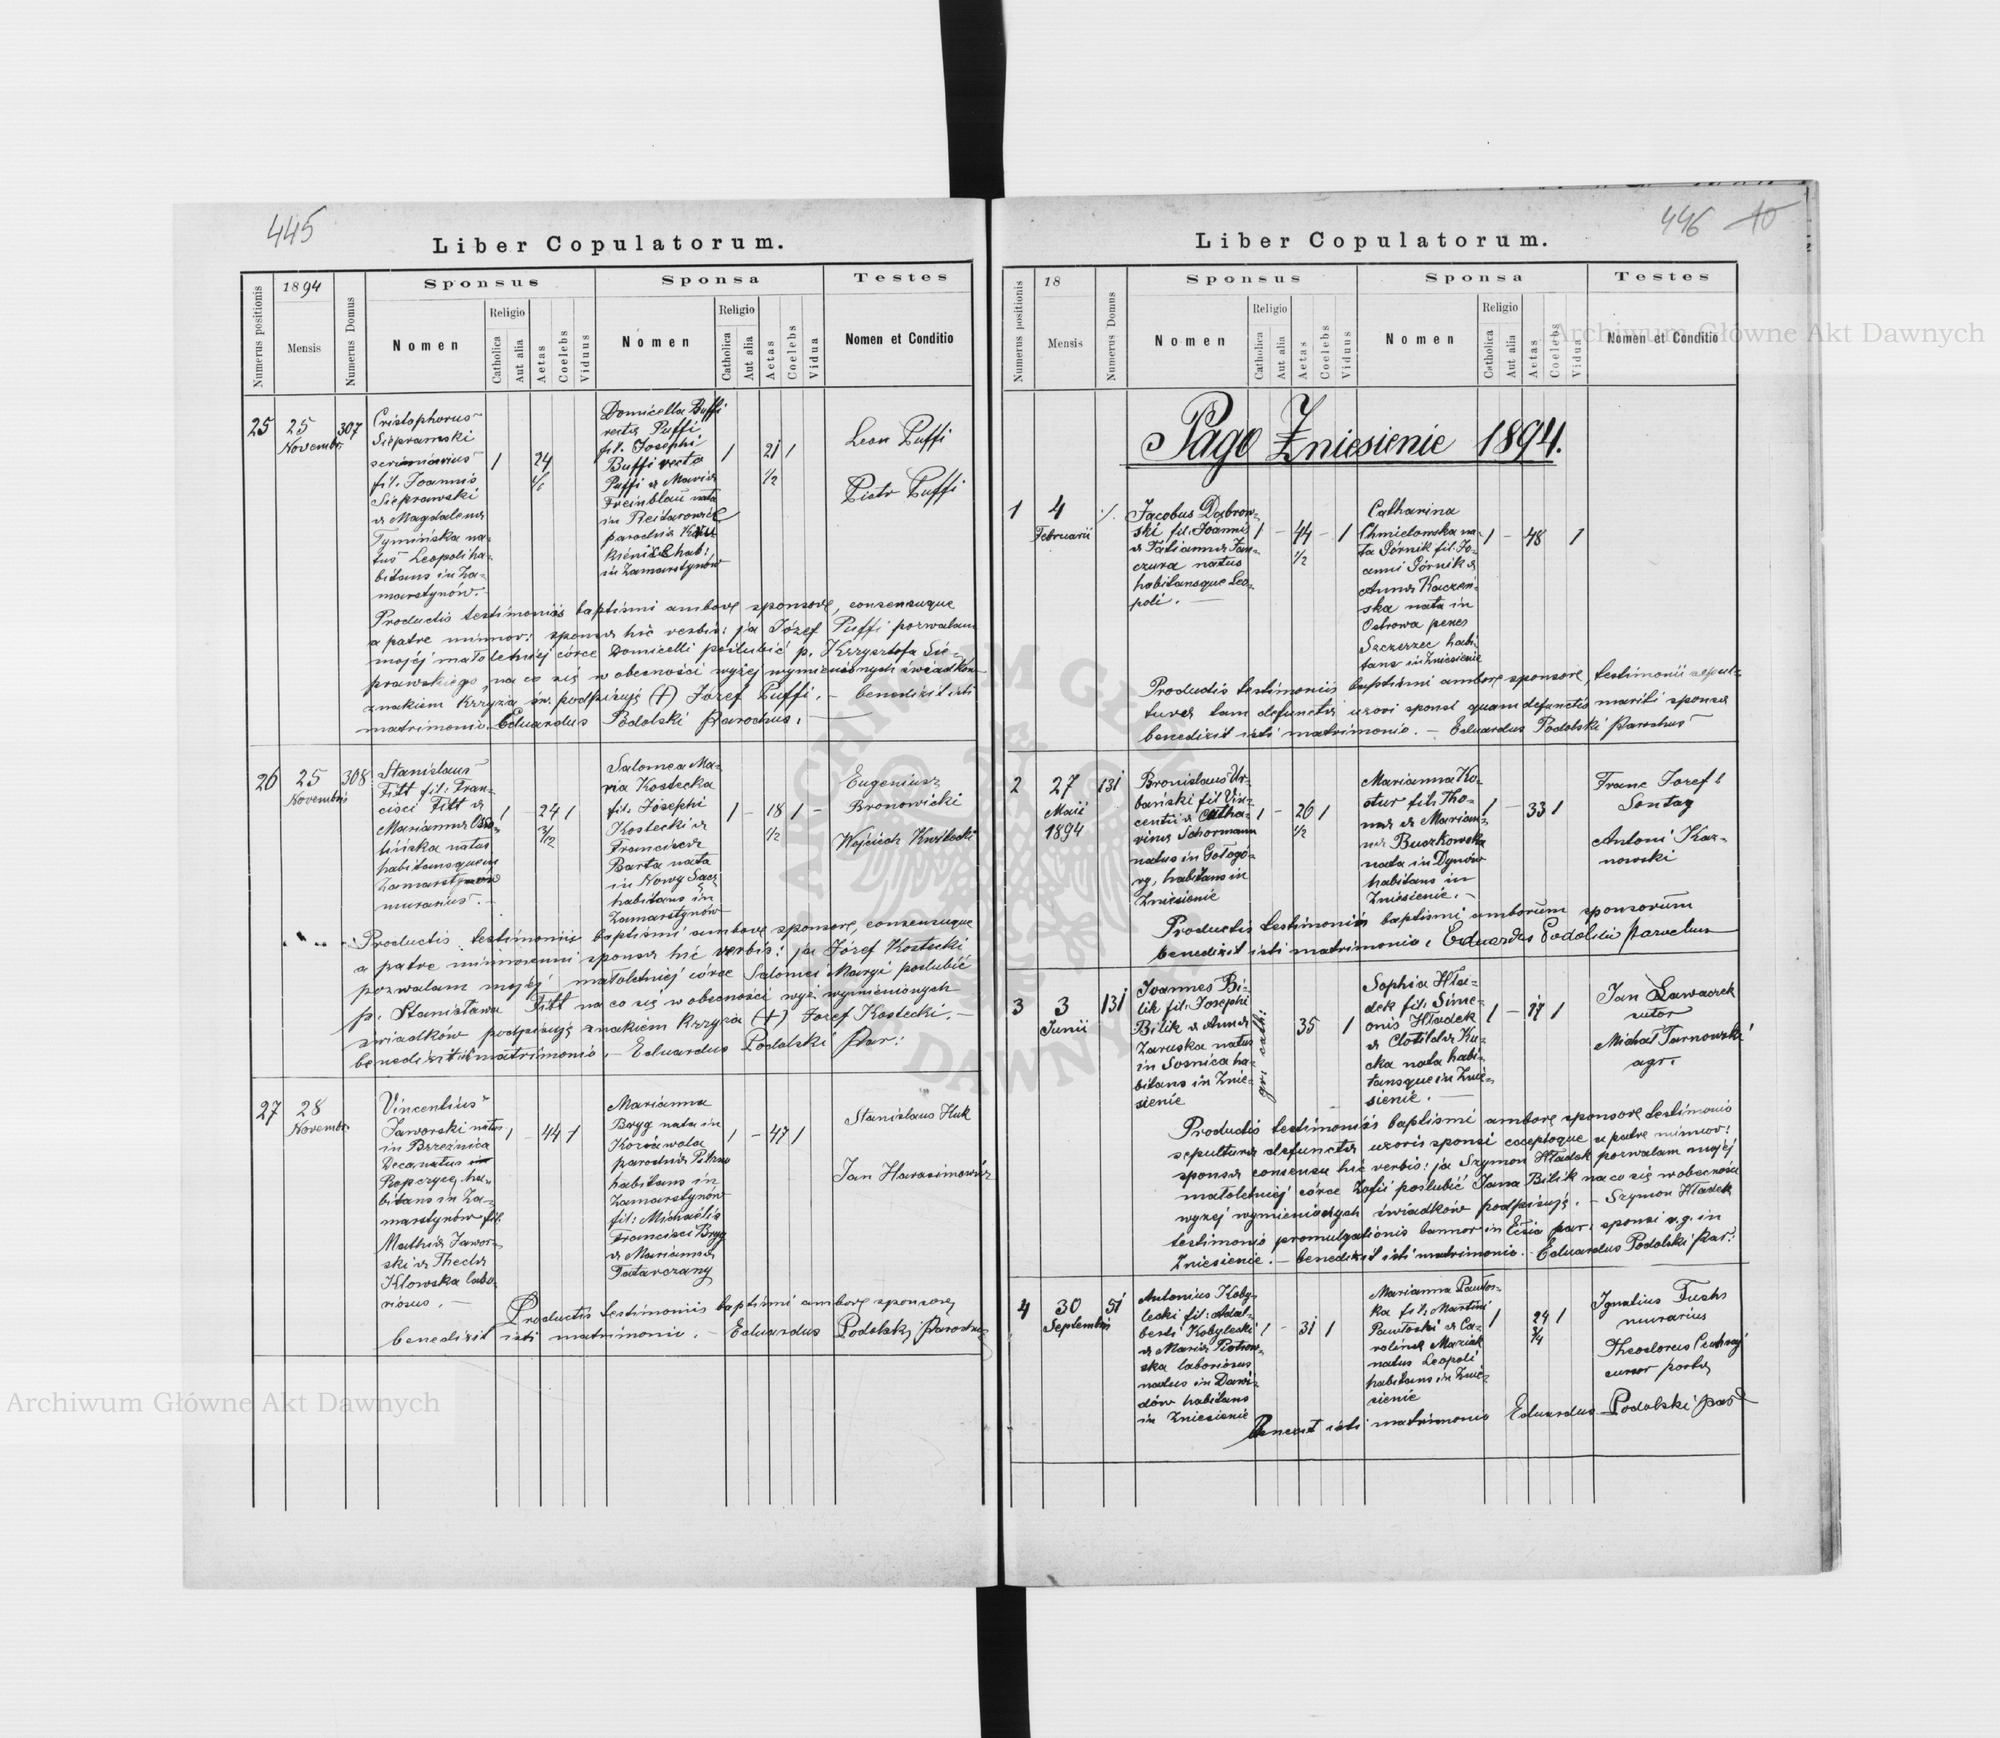 445
Liber Copulatorum.
Numerus positionis
1894
Mensis
Numerus Domus
Sponsus
Nomen
Religio
Catholica
Aut alia
Aetas
Coelebs
Viduus
Sponsa
Nomen
Religio
Catholica
Aut alia
Aetas
Coelebs
Vidua
Testes
Nomen et Conditio
25
25
Novembr
307
Cristophorus
Siepramski
fil. Joannis
Sieprawski
& Magdalena
Tymińska na-
tus Leopoli ha-
bitans in Za-
marstynów.
1
24
Domicella Buffi
recte Puffi
fil. Josephi
Buffi recte
Puffi & Maria
Freinblau nata
in
parochia
hab:
in Zamarstynów
1
21 1
1/2
Leon Puffi
Piotr Puffi
Productis testimoniis baptismi ambore sponsore, consensuque
a patre minnor: sponsa hic verbis: ja Józef Puffi pozwalam
mojéj małoletniéj córce Domicelli poślubić p. Krzysztofa Sie-
prawskiego, na co się w obecności wyżéj wymienionych świadków
znakiem krzyża św. podpisuję (+) Józef Puffi. - benedixit isti
matrimonio Eduardus Podolski Parochus.
26
25
Novembris
308
Stanislaus
Titt fil: Fran-
cisci Titt &
Marianna Osso-
lińska natus
habitansque in
Zamarstynów
murarius.
1 - 24 1
3/12
Salomea Ma-
ria Kostecka
fil. Josephi
Kostecki &
Francisca
Barta nata
in Nowy Sącz
habitans in
Zamarstynów
1 - 18 1 -
1/2
Eugeniusz
Bronowicki
Wojciech
Productis testimoniis baptismi ambore sponsore, consensuque
a patre minnorenni sponsa hic verbis: ja Józef Kostecki
pozwalam mojéj małoletniej córce Salomei Maryi poślubić
p. Stanisława Titt na co się w obecności wyż. wymienionych
świadków podpisuję znakiem krzyża (+) Józef Kostecki. -
benedixit isti matrimonio. - Eduardus Podolski Par:
27
28
Novembr.
Vincentius
Jaworski natus
in Brzeźnica
Decanatus in
Ropczyce, ha-
bitans in Za-
marstynów fil.
Mathia Jawor-
ski & Thecla
Kłowska labo-
riosus.
1 - 44 1
Marianna
Bryg nata in
Kozia wola
parochia
habitans in
Zamarstynów
fil: Michaelis
Francisci Bryg
& Marianna
Tatarczany
1 - 47 1
Stanislaus Huk
Jan Harasimowicz
Productis testimoniis baptismi ambore sponsore,
benedixit isti matrimonio. - Eduardus Podolski Parochus
446 10
Liber Copulatorum.
Numerus positionis
18
Mensis
Numerus Domus
Sponsus
Nomen
Religio
Catholica
Aut alia
Aetas
Coelebs
Viduus
Sponsa
Nomen
Religio
Catholica
Aut alia
Aetas
Coelebs
Vidua
Testes
Nomen et Conditio
Pago Zniesienie 1894.
1
4
Februarii
Jacobus Dąbrow-
ski fil. Joannis
& Tatianna Jan-
czura natus
habitansque Leo-
poli. -
1 - 44 - 1
1/2
Catharina
Chmielowska na-
ta Górnik fil. Jo-
anni Górnik &
Anna Kaczeń-
ska nata in
Ostrowa penes
Szczerzec habi-
tans in Zniesienie
1 - 48 1
Productis testimoniis baptismi ambore sponsore, testimonii sepul-
tura tam defuncta uxori sponsi quam defuncti mariti sponsa
benedixit isti matrimonio. - Eduardus Podolski Parochus
2
27
Maii
1894
131
Bronislaus Ur-
bański fil Vin-
centii & Catha-
rina Schormann
natus in Gołogó-
ry, habitans in
Zniesienie
1 - 26 1
1/2
Marianna Ko-
stur fil. Tho-
ma & Marian-
na Buszkowska
nata in Dynów
habitans in
Zniesienie. -
1 - 33 1
Franc Josef
Sontag
Antoni Kar-
nowski
Productis testimoniis baptismi amborum sponsorum
benedixit isti matrimonio. Eduardus Podolski Parochus
3
3
Junii
131
Joannes Bi-
lik fil: Josephi
Bilik & Anna
Zaruska natus
in Sośnica ha-
bitans in Znie-
sienie
gr. cath
35 1
Sophia Hła-
dek fil. Sime-
onis Hładek
& Clotilda Ku-
cka nata habi-
tansque in Znie-
sienie. -
1 - 17 1
Jan Ławaczek
sutor
Michał Tarnowski
agr.
Productis testimoniis baptismi ambore sponsore testimonio
sepultura defuncta uxoris sponsi coeptoque a patre minnor:
sponsa consensu hic verbis: ja Szymon Hładek pozwalam mojéj
małoletniéj córce Zofii poślubić Jana Bilik na co się w obecności
wyżej wymienionych świadków podpisuję. - Szymon Hładek
testimonio promulgationis bannor in Ecsia par: sponsi r. g. in
Zniesienie. - benedixit isti matrimonio. - Eduardus Podolski Par:
4
30
Septembris
51
Antonius Koby-
lecki fil: Adal-
berti Kobylecki
& Maria Piotrow-
ska laboriosus
natus in Dawi-
dów habitans
in Zniesienie
1 - 31 1
Marianna Pawłos-
ka fil: Martini
Pawłoski & Ca-
rolina Maziak
natus Leopoli
habitans in Znie-
sienie
1 24 1
3/4
Ignatius Fuchs
murarius
Theodorus
cursor porta
isti matrimonio Eduardus Podolski par
Archiwum Główne Akt Dawnych
Archiwum Główne Akt Dawnych